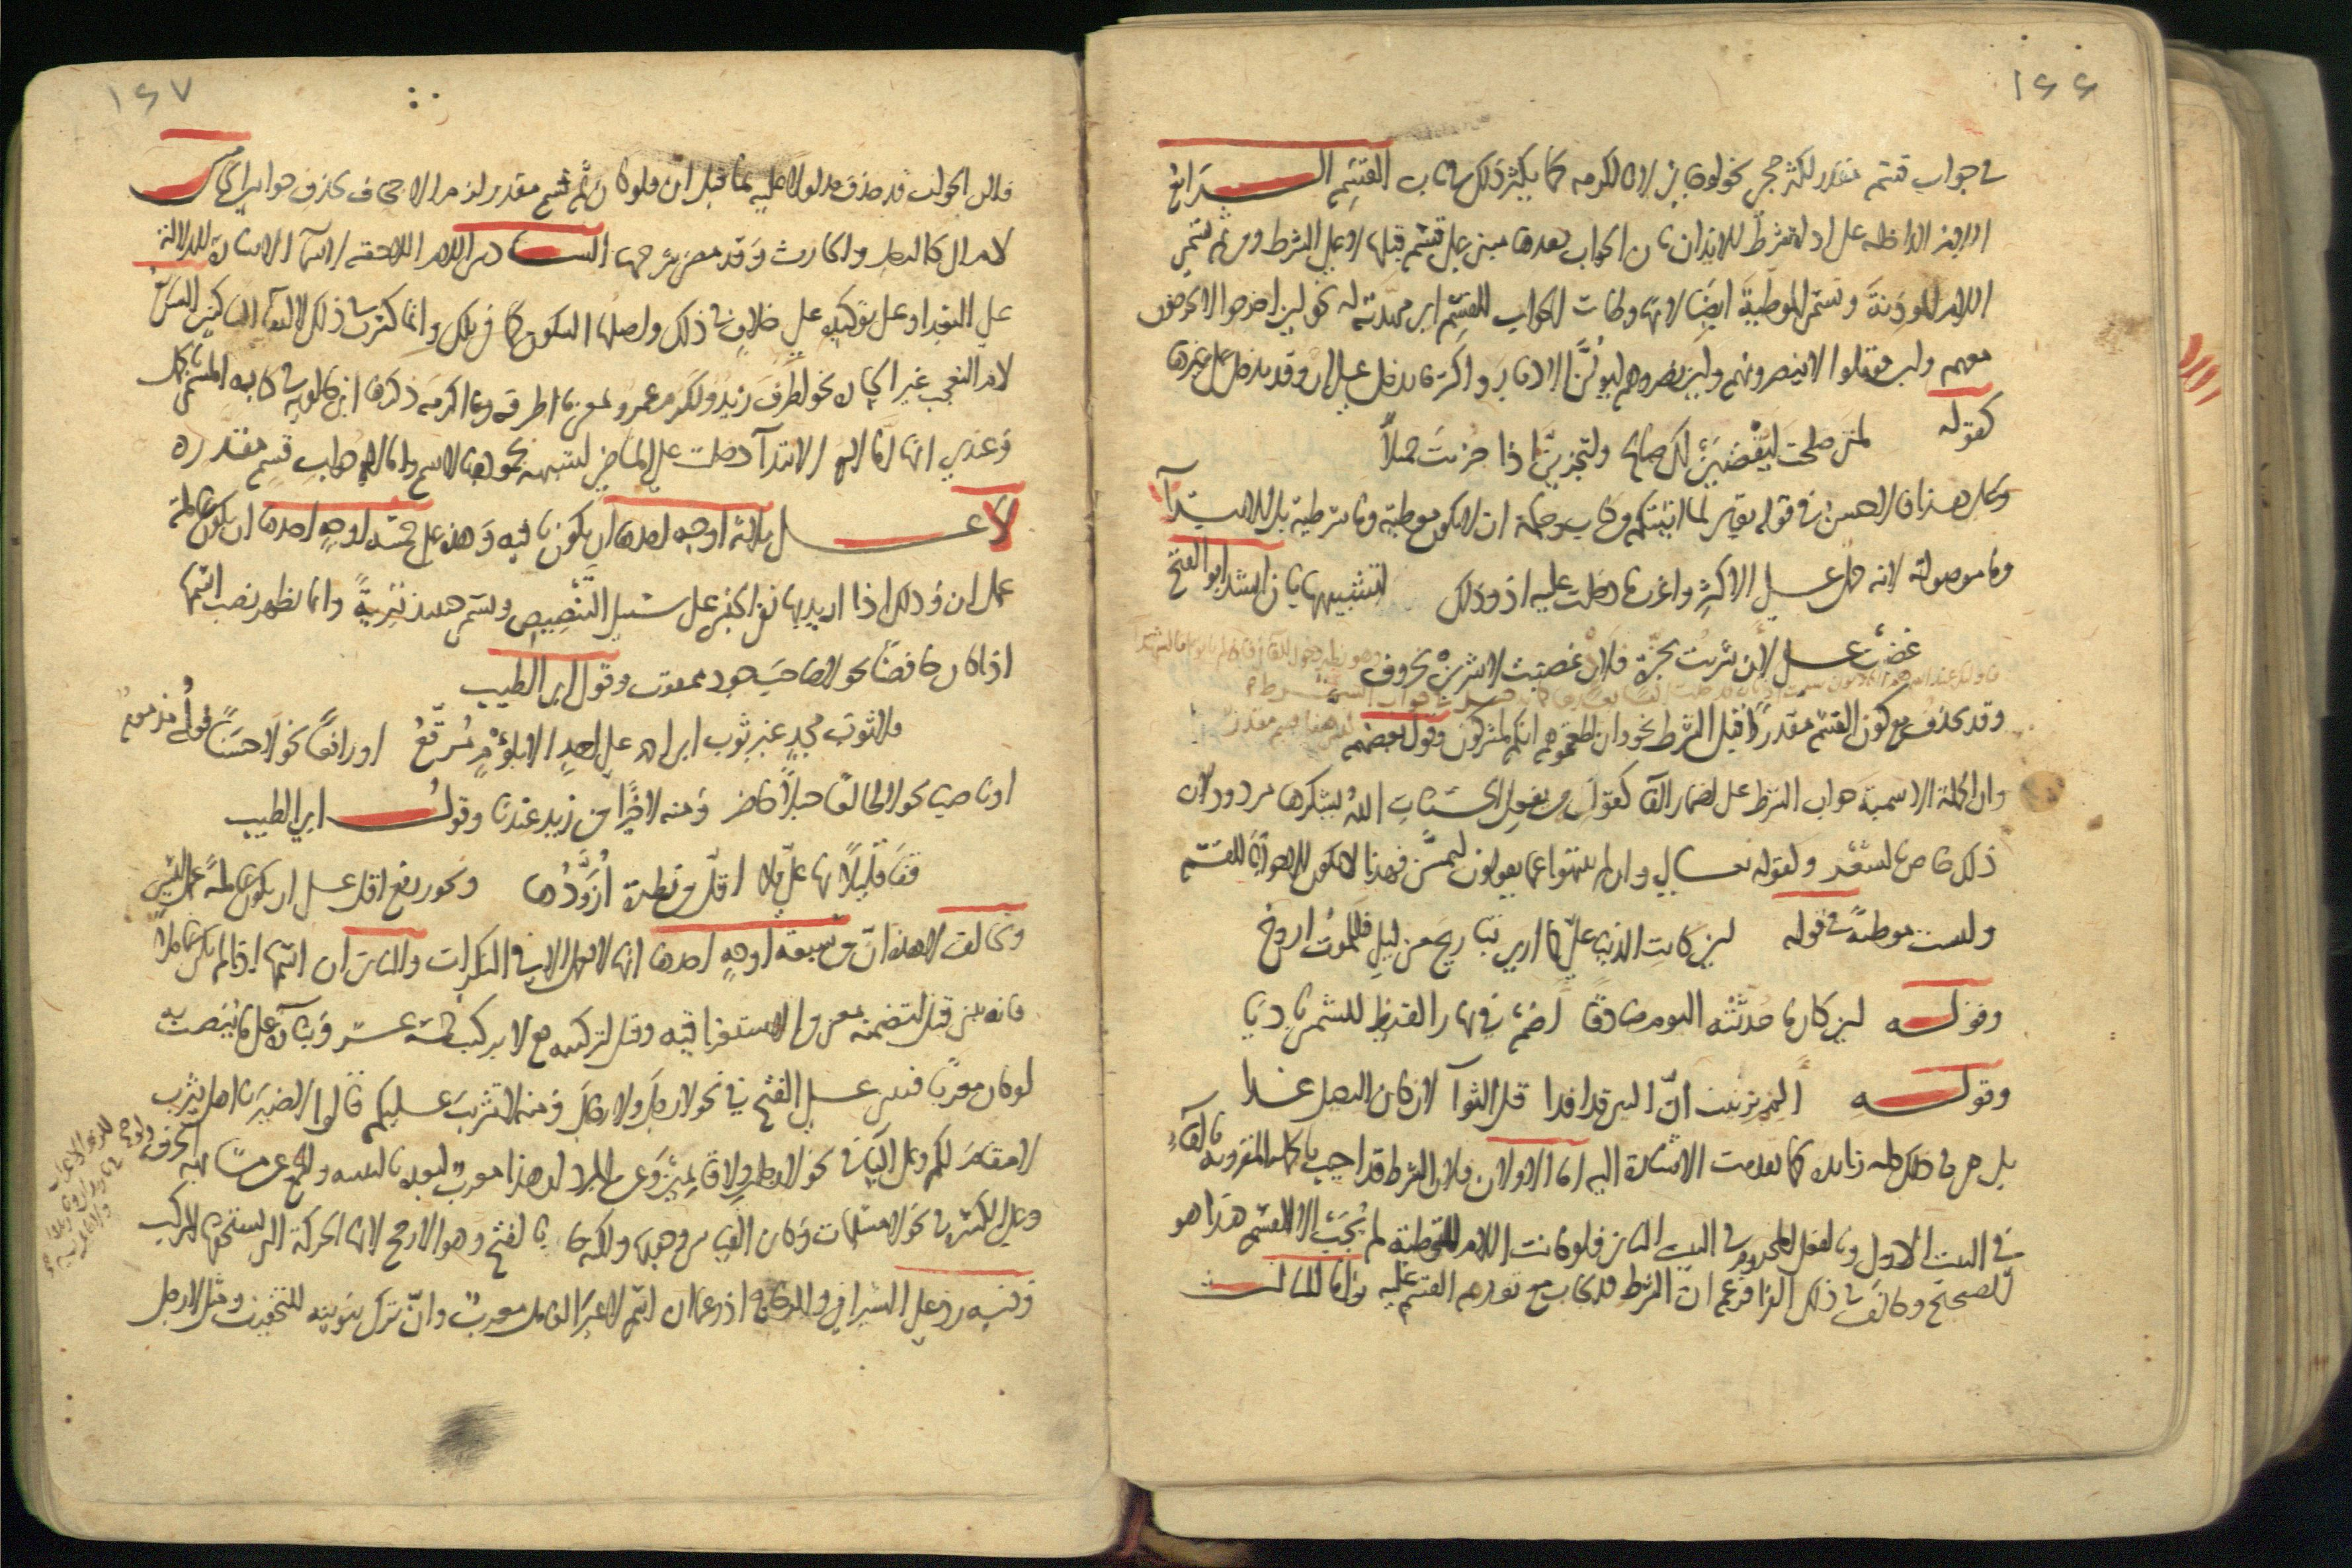 ١٤٦
في جواب قسم مقدر لكثر مجي نحو لوجايني لاكرمه كما يكثر ذلك في باب القسم الرابع
اللام الداخلة على اداة شرط للايذان بان الجواب بعدها مبني على قسم قبلها لا على الشرط ومن ثم تسمى
اللام الموذنة وتسمى الموطية ايضا لانها وطات الجواب للقسم اي مهدته له نحو لين اخرجوا لا يخرجون
معهم ولين قوتلوا لا ينصرونهم ولين نصروهم ليولن الادبار واكثر ما تدخل على ان وقد تدخل على غيرها
كقوله لمتى صلحت ليقضين لك صالح ولتجزين اذا جزيت جميلا
وعلى هذا فالاحسن في قوله تعالى لما اتيتكم من كتاب وحكمة ان لا تكون موطية وما شرطية بل للابتدآ
وما موصولة لانه حمل على الاكثر واغرب ما دخلت عليه اذ وذلك لتشبيهها بان انشد ابو الفتح
غضبت علي لان شربت بجزة فلاذ غضبت لاشربن بخروف
وقد تحذف مع كون القسم مقدرا قبل الشرط نحو وان اطعتموهم انكم لمشركون وقول بعضهم
وان الجملة الاسمية جواب الشرط على اضمار الفا كقوله من يفعل الحسنات الله يشكرها مردود لان
ذلك خاص بالشعر وكقوله تعالى وان لم ينتهوا عما يقولون ليمسن فهذا لا يكون الا جوابا للقسم
وليست موطئة في قوله لين كانت الدنيا علي كما ارى تباريح من ليلى فللموت اروح
وقوله لين كان ما حدثته اليوم صادقا اصم في نهار القيظ للشمس باديا
وقوله المم بزينب ان البين قد افدا قل الثوآ لين كان الرحيل غدا
بل هي في ذلك كله زايدة كما تقدمت الاشارة اليه اما الاولان فلان الشرط قد اجيب بالجملة المقرونة بالفآء
في البيت الاول وبالفعل المجزوم في البيت الثاني فلو كانت اللام للتوطية لم يجب الا القسم هذا هو
الصحيح وخالف في ذلك الفرا فزعم ان الشرط قد يجاب مع تقدم القسم عليه واما الثالث
١٤٧
فلان الجواب قد حذف مدلولا عليه بما قبل ان فلو كان ثم قسم مقدر لزم الاجحاف بحذف جوابين الخامس
لام ال كالرجل والحارث وقد مضى شرحها السادس اللام اللاحقة لاسما الاشارة للدلالة
على البعد او على توكيده على خلاف في ذلك واصلها السكون كما في تلك وانما كسرت في ذلك لالتقا الساكنين السابع
لام التعجب غير الجارة نحو لظرف زيد ولكرم عمرو بمعنى ما اظرفه وما اكرمه ذكره ابن خالويه في كتابه المسمى بالجمل
وعندي انها اما لام الابتدآ دخلت على الماضي لشبهه بجموده بالاسم واما لام جواب قسم مقدره
لا على ثلاثة اوجه احدها ان يكون نافية وهذه على خمسة اوجه احدها ان يكون عاملة
عمل ان وذلك اذا اريد بها نفي الجنس على سبيل التنصيص وتسمى حينئذ تبرية وانما يظهر نصب اسمها
اذا كان خافضا نحو لا صاحب جود ممقوت وقول ابي الطيب
فلا ثوب مجد غير ثوب ابن احمد على احد الا بلؤم مرقع او رافعا نحو لا حسنا فعله مذموم
او ناصبا نحو لا طالعا جبلا حاضر ومنه لا خيرا من زيد عندنا وقول ابي الطيب
قفا قليلا بها علي فلا اقل من نظرة ازودها ويجوز رفع اقل على ان يكون عاملة عمل ليس
وتخالف لا هذه ان من سبعة اوجه احدها انها لا تعمل الا في النكرات والثاني ان اسمها اذا لم يكن عاملا
فانه يبنى قيل لتضمنه معنى من الاستغراقية وقيل لتركيبه مع لا تركيب خمسة عشر وبناؤه على ما ينصب به
لو كان معربا فيبنى على الفتح في نحو لا رجل ولا رجال ومنه لا تثريب عليكم قالوا لا ضير يا اهل يثرب
لا مقام لكم وعلى اليا في نحو لا رجلين ولا قايمين وعن المبرد ان هذا معرب لبعده بالتثنية والجمع عن مشابهة الحرف
وعلى الكسرة في نحو لا مسلمات وكان القياس وجوبها ولكنه جا بالفتح وهو الارجح لانها الحركة التي يستحقها المركب
وفيه رد على السيرافي والزجاج اذ زعما ان اسم لا غير العامل معرب وان ترك تنوينه للتخفيف ومثل لا رجل